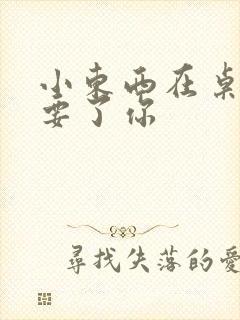 小东西在桌
要了你
尋找失落的愛